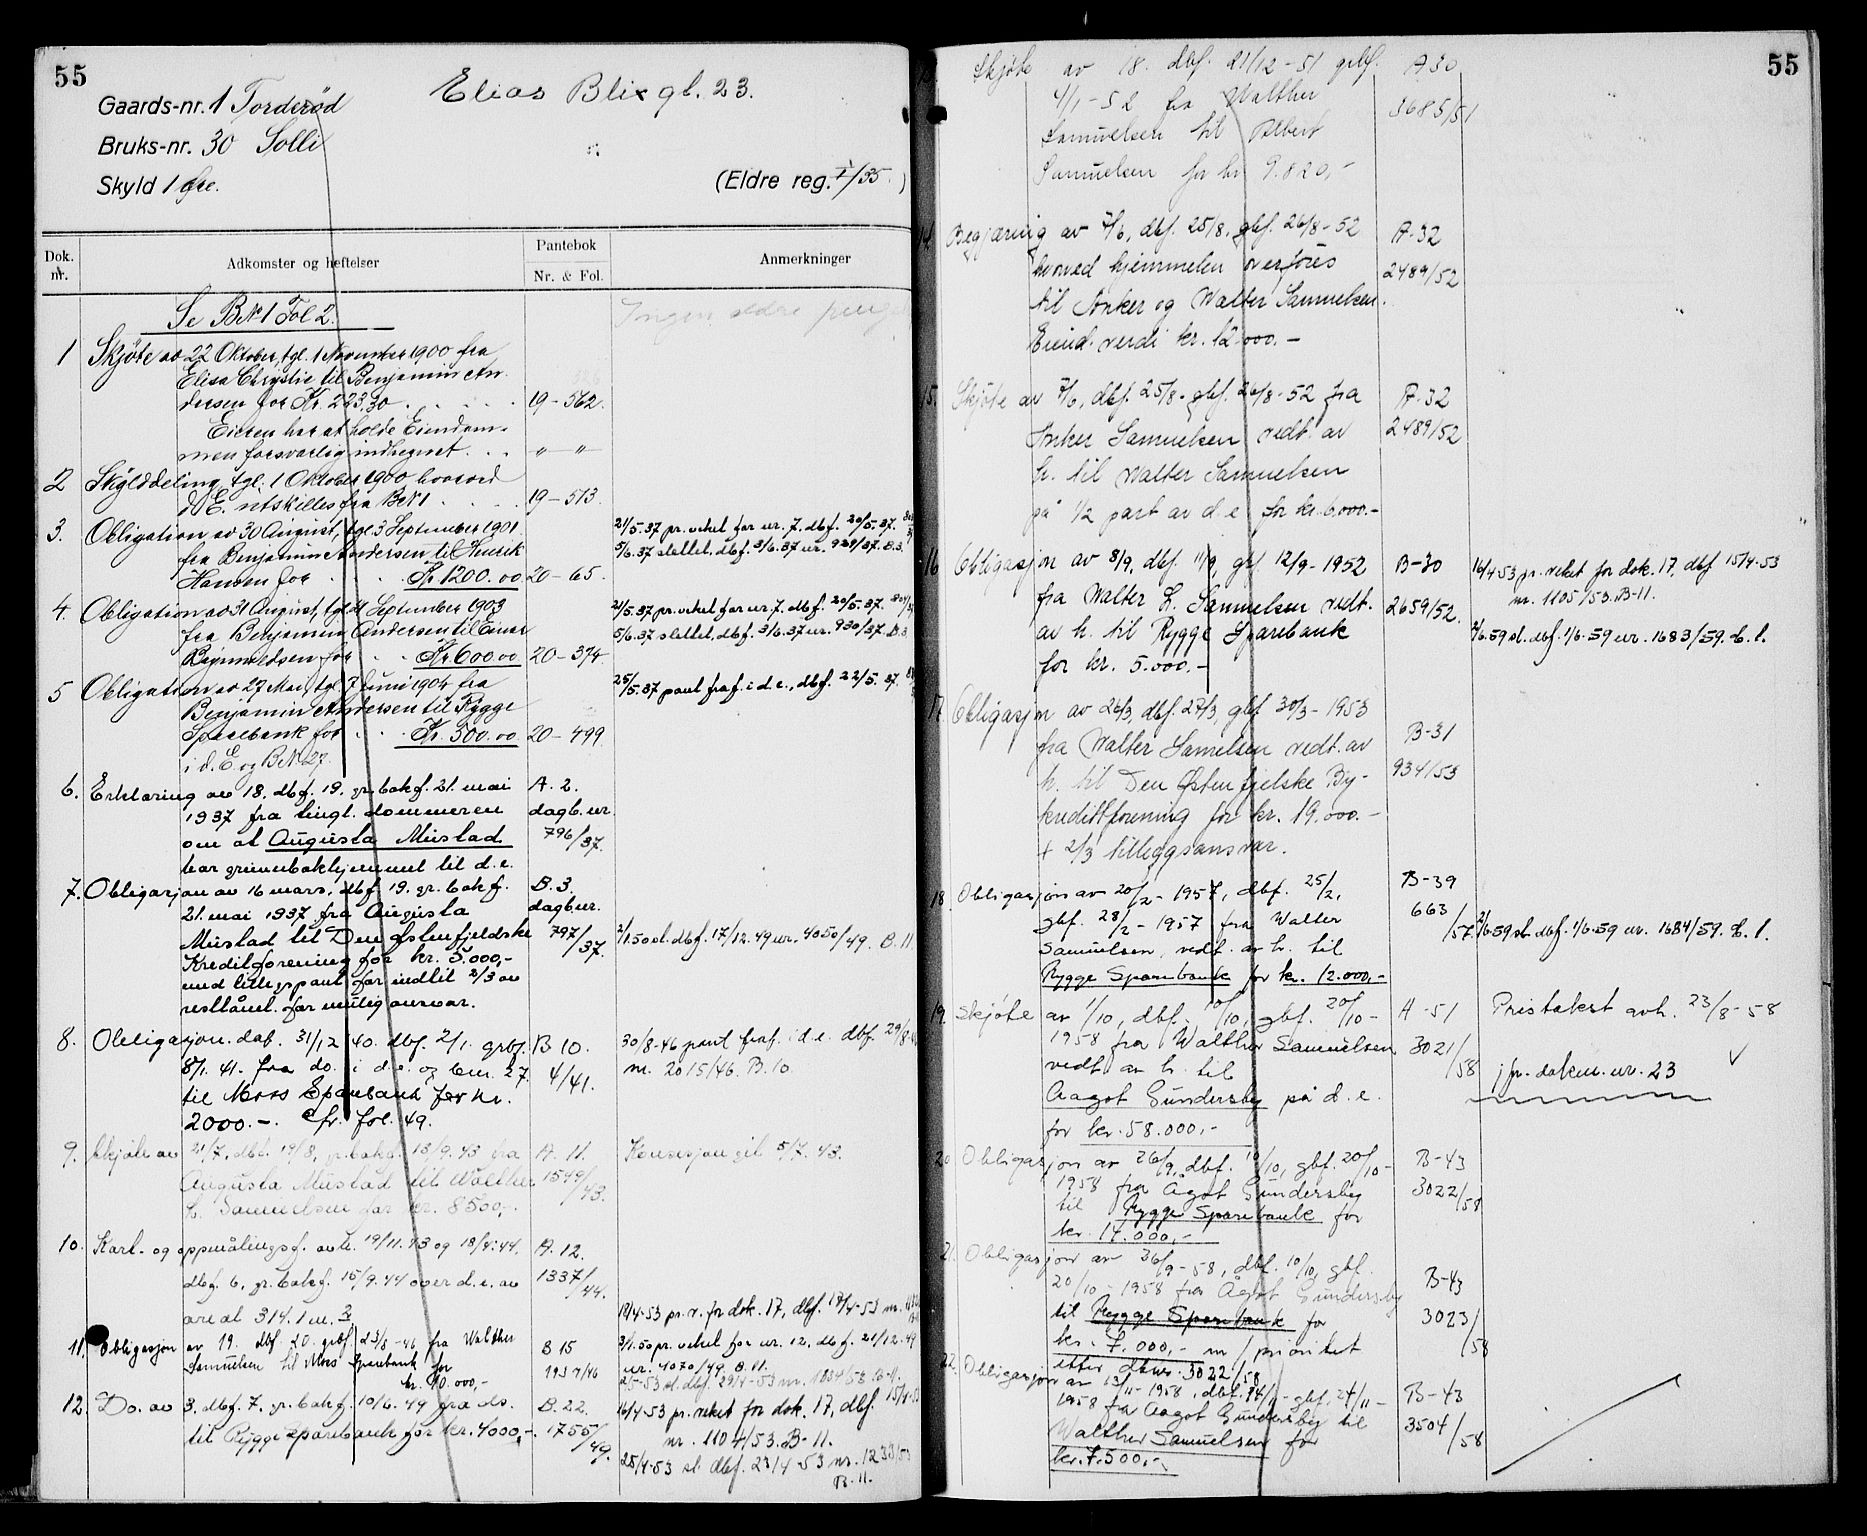 55
Elias Blix gt. 23.
Gaards-nr. 1 Torderød
Bruks-nr. 30 Solli
Skyld 1 Øre.
(Eldre reg. I/55.)
Dok. nr.
Adkomster og heftelser
Pantebok
Nr. & Fol.
Anmerkninger
Se BN 1 Fol 2.
Ingen eldre
1 Skjöte av 22 Oktober, tgl. 1 November 1900 fra
Elisa Chrystie til Benjamin An-
dersen for Kr. 223,30 . . . . 19 - 562.
Eieren har at holde Eiendom-
men forsvarlig indhegnet. . . " - "
2 Skylddeling, tgl. 1 Oktober 1900 hvorved
d. E. utskilles fra BN 1 . . . 19 - 513.
3. Obligation av 30 August, tgl 3 September 1901
fra Benjamin Andersen til Henrik
Hansen for . . . Kr 1200.00 20 - 65.
21/5.37 pr. vekel for nr. 7. dbf. 20/5.37.
5/6.37 slettet, dbf. 3/6.37 nr. 929/37. B.3.
4. Obligation av 31 August, tgl 4 September 1903
fra Benjamin Andersen til Einar
for . . Kr 600.00 20 - 374.
21/5.37 pr. vekel for nr 7. dbf. 20/5.37.
5/6.37 slettet, dbf. 3/6.37 nr. 930/37. B.3
5 Obligation av 27 Mai, tgl. 7 Juni 1904 fra
Benjamin Andersen til Rygge
Sparebank for . . . Kr. 500.00 20 - 499.
i d. E. og BN 27.
25/5.37 pant fraf. i d.e., dbf. 22/5.37.
6. Erklæring av 18. dbf. 19. gr.bokf. 21. mai
1937 fra tingl. dommeren
om at Augusta Mustad
har grunnbokhjemmel til d.e.
A. 2.
dagb.nr.
796/37.
7. Obligasjon av 16 mars, dbf. 19. gr.bokf.
21. mai 1937 fra Augusta
Mustad til Den Østenfjeldske
Kreditforening for kr. 5.000,-
med tilleggspant for inntil 2/3 av
restlånet for mulig ansvar.
B. 3.
dagb.nr.
797/37.
2/1.50 sl. dbf. 17/12.49 nr. 4050/49. B. 11.
8. Obligasjon. dat. 31/12 40. dbf. 2/1. grbf.
8/1. 41. fra do. i d.e. og bnr. 27.
til Moss Sparebank for kr.
2000.-. Cfr. fol. 49.
B 10.
4/41.
30/8-46 pant fraf. i d.e. dbf. 29/8-46
nr. 2015/46. B.10.
9. Skjöte av 21/7, dbf. 19/8, gr.bokf. 13/9.43 fra
Augusta Mustad til Walther
L. Samuelsen for kr. 8500,-.
A. 11.
1549/43.
Konsesjon git 5/7.43.
10. Kart- og oppmålingsf. avh. 19/11.43 og 18/4.44.
dbf. 6. gr.bokf. 15/9.44 over d.e. av
areal 314.1 m.2
A. 12.
1337/44.
11. Obligasjon av 19. dbf 20. grbf 23/8-46 fra Walther
Samuelsen til Moss Sparebank for
kr. 10.000,-
B 15
1937/46
18/4-53 pr.v. for dok. 17, dbf. 17/4-53 nr.
3/1.50 pr. vekel for nr. 12, dbf. 21/12.49
nr. 4070/49. B.11.
2/5-53 sl. dbf. 29/4-53 nr. 1304/53 B-11.
12. Do. av 3. dbf. 7. gr.bokf. 10/6.49 fra do.
til Rygge Sparebank for kr. 4000,-.
B. 22.
1755/49.
16/4-53 pr. veket for dok. 17, dbf. 15/4-53
nr. 1104/53. B-11.
25/4-53 sl. dbf. 23/4-53 nr. 1233/53
B-11.
55
Skjöte av 18. dbf. 21/12-51 grbf.
4/1-52 fra Walther
Samuelsen til Albert
Samuelsen for kr 9.820,-
A 30
3685/51
14. Begjæring av 7/6, dbf. 25/8, gbf. 26/8-52
hvorved hjemmelen overføres
til Anker og Walter Samuelsen.
Eiend. verdi kr. 12.000.-
A-32
2489/52
15. Skjöte av 7/6, dbf. 25/8. gbf. 26/8-52 fra
Anker Samuelsen vedt. av
h. til Walter Samuelsen
på 1/2 part av d.e for kr. 6.000.-
A-32
2489/52
16 Obligasjon av 8/9, dbf. 11/9, gbf 12/9-1952
fra Walter L. Samuelsen vedt.
av h. til Rygge Sparebank
for kr. 5.000.-
B-30
2659/52.
16/4-53 pr. veket for dok. 17, dbf 15/4-53
nr. 1105/53. B-11.
2/6.59 sl. dbf. 1/6-59 nr. 1683/59. b. l.
17 Obligasjon av 26/3, dbf. 27/3, gbf 30/3-1953
fra Walter Samelsen vedt. av
h. til Den Østenfjelske By-
kredittforening for kr. 19.000.-
+ 2/3 tilleggsansvar.
B-31
934/53
18. Obligasjon av 20/2-1957, dbf. 25/2,
gbf. 28/2-1957 fra Walter
Samuelsen, vedt. av h. til
Rygge Sparebank for kr. 12.000,-
B-39
663/57.
2/6.59 sl. dbf. 1/6.59 nr. 1684/59. b. l.
19. Skjöte av 1/10, dbf. 10/10, gbf. 20/10-
1958 fra Walther Samuelsen
vedt av h. til
Aagot Gundersby på d.e.
for kr. 58.000,-
A-51
3021/58
Pristakst avh. 23/8-58
jfr. dokm. nr. 23 ✓
20 Obligasjon av 26/9, dbf. 10/10, gbf. 20/10-
1958 fra Ågot Gundersby
til Rygge Sparebank for
kr. 17.000,-
B-43
3022/58
21. Obligasjon av 26/9-58, dbf. 10/10, gbf.
20/10-1958 fra Ågot Gundersby
til Rygge Sparebank for
kr. 7.000,- m/ prioritet
etter dbnr. 3022/58
B-43
3023/58
22. Obligasjon av 13/11-1958, dbf. 14/11- gbf. 24/11-
1958 fra Aagot Gundersby til
Walther Samuelsen for
kr. 7.500,-
B-43
3504/58